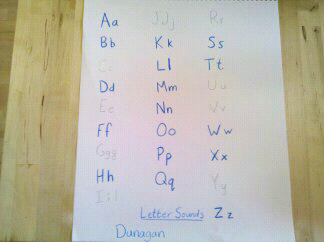 Aa Jj Rr
Bb Kk Ss
Cc Ll Tt
Dd Mm Uu
Ee Nn Vv
Ff Oo Ww
Ggg Pp Xx
Hh Qq Yy
Letter Sounds Zz
Dunagan